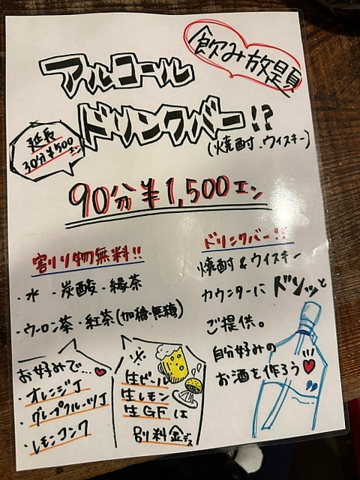 飲み放題
アルコール
ドリンクバー!?
(焼酎、ウイスキー)
延長
30分¥500エン
90分¥1,500エン
割り物無料!!
・水 ・炭酸・緑茶
・ウーロン茶・紅茶(加糖・無糖)
お好みで…
・オレンジJ
・グレープフルーツJ
・レモンコンク
※
生ビール
生レモン
生GFは
別料金デス
ドリンクバー!!
焼酎&ウイスキー
カウンターにドンッと
ご提供。
自分好みの
お酒を作ろう